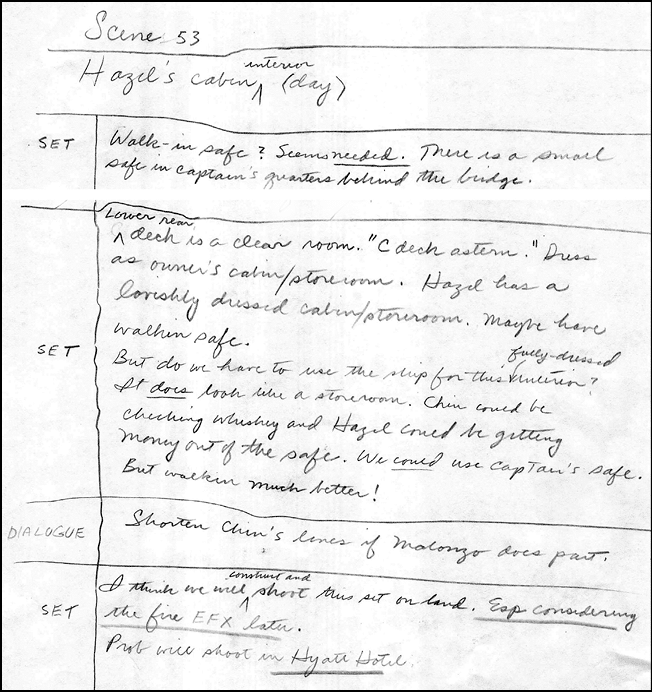 Scene 53
Hazel's cabin ^ interior (day)
SET
Walk-in safe? Seems needed. There is a small
safe in captain's quarters behind the bridge.
Lower rear
^ deck is a clear room. "C deck astern." Dress
as owner's cabin/storeroom. Hazel has a
lavishly dressed cabin/storeroom. Maybe have
walkin safe.
SET
fully-dressed
But do we have to use the ship for this ^ interior?
It does look like a storeroom. Chin could be
checking whiskey and Hazel could be getting
money out of the safe. We could use captain's safe.
But walkin much better!
DIALOGUE
Shorten Chin's lines if Malonzo does part.
SET
construct and
I think we will ^ shoot this set on land. Esp considering
the fire EFX later.
Prob will shoot in Hyatt Hotel.